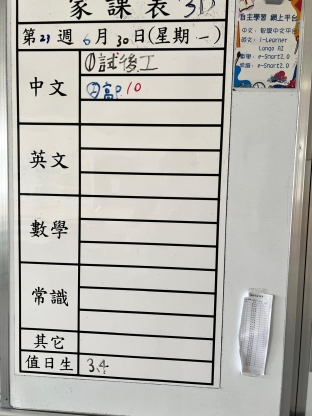 家課表 3D
第21週 6月30日(星期一)
中文
①試後工
②高P.10
英文
數學
常識
其它
值日生 3.4
自主學習 網上平台
中文: 智愛中文平台
英文: i-Learner
Longo AI
數學: e-Smart2.0
常識: e-Smart2.0